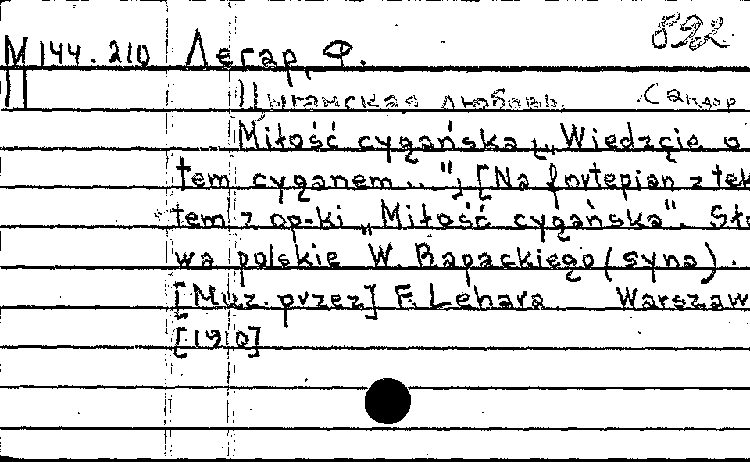 892
М 144.210 Легар, Ф.
Цыганская любовь. Сандор
Miłość cygańska „Wiedzcie o
tem cyganem..."; [Na fortepian z tek
tem z op-ki „Miłość cygańska". Sło
wa polskie W. Rapackiego (syna).
[Muz. przez] F. Lehara Warszaw
[1910]